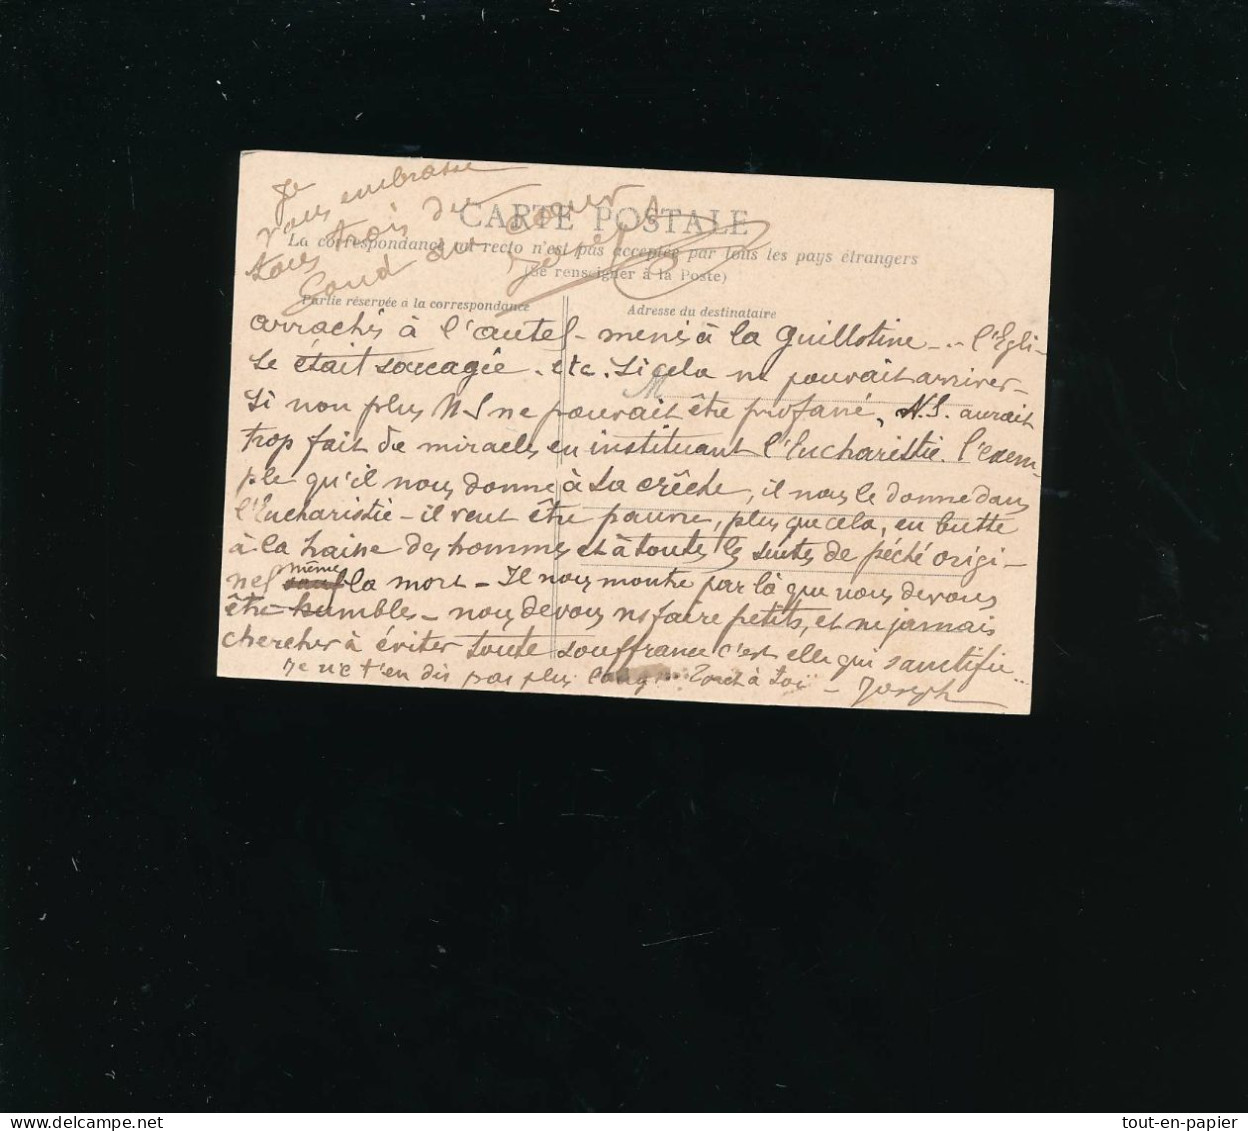 Je
vous embrasse
tous trois du
fond du cœur
Joseph
CARTE POSTALE
La correspondance au recto n'est pas acceptée par tous les pays étrangers
(Se renseigner à la Poste)
Partie réservée à la correspondance
Adresse du destinataire
M
arrachés à l'autel - menés à la guillotine - .. l'Egli-
se était saccagée - etc. Si cela ne pouvait arriver -
Si non plus NS ne pouvait être profané, N.S. aurait
trop fait de miracles en instituant l'Eucharistie. l'exem-
ple qu'il nous donne à la crêche, il nous le donne dans
l'Eucharistie - il veut être pauvre, plus que cela, en butte
à la haine des hommes et à toutes les suites de péché origi-
nel même la mort - Il nous montre par là que nous devons
être humbles - nous devons ns faire petits, et ne jamais
chercher à éviter toute souffrance c'est elle qui sanctifie...
Je ne t'en dis pas plus long ... Tout à toi - Joseph
tout-en-papier